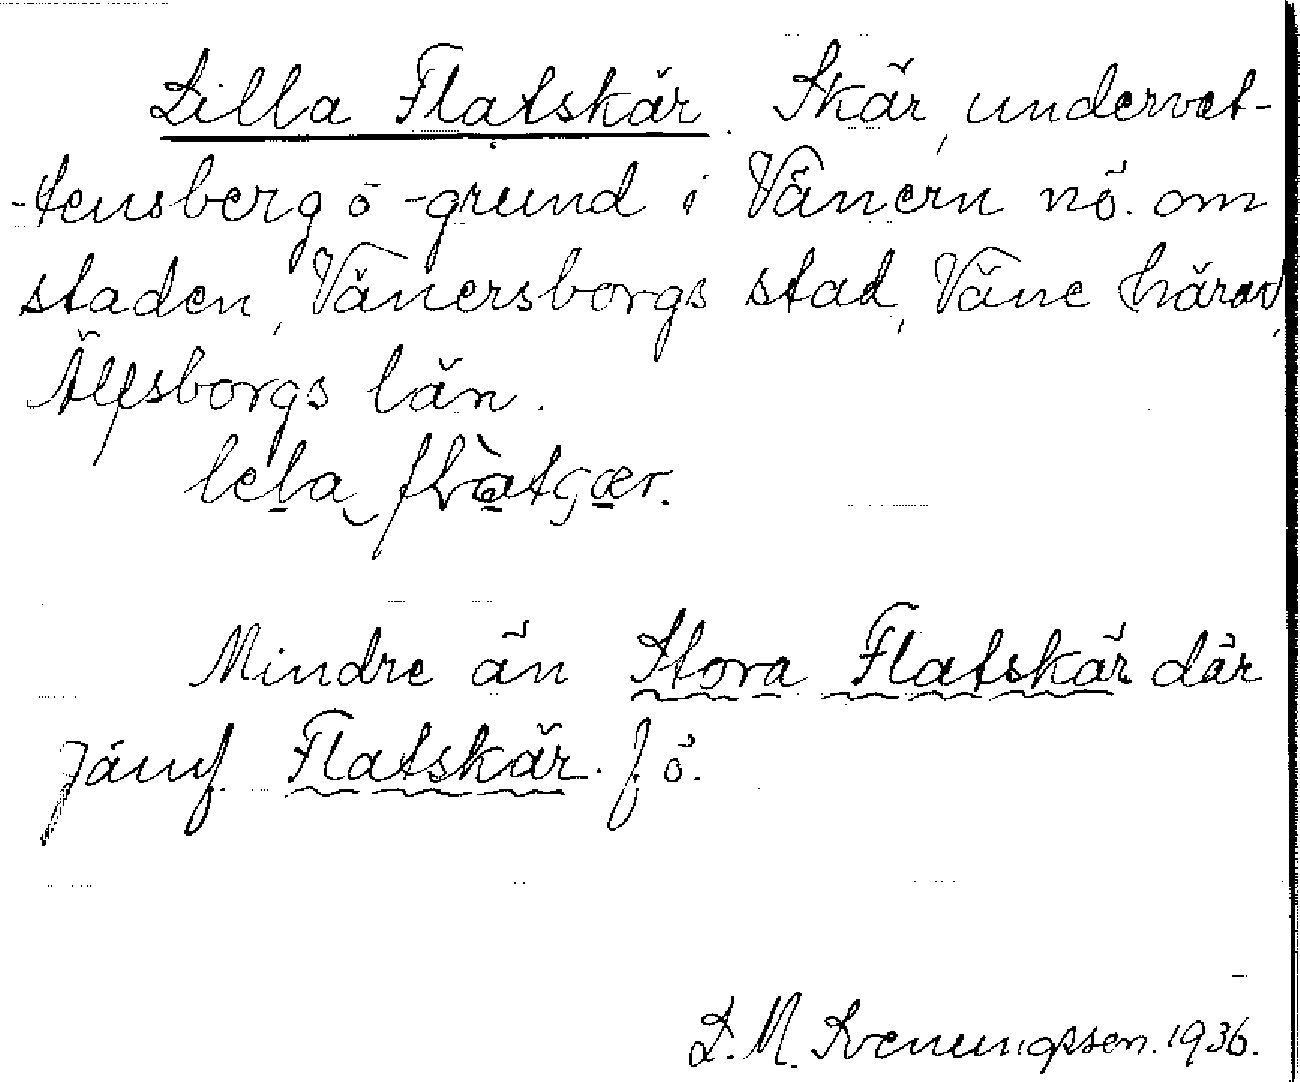 Lilla Flatskär. Skär, undervat-
-tensberg o -grund i Vänern nö. om
staden, Vänersborgs stad, Väne härad,
Älfsborgs län.
lela flàtgær.
Mindre än Stora Flatskär där
jämf. Flatskär. f. ö.
L. M. Svenungsson. 1936.